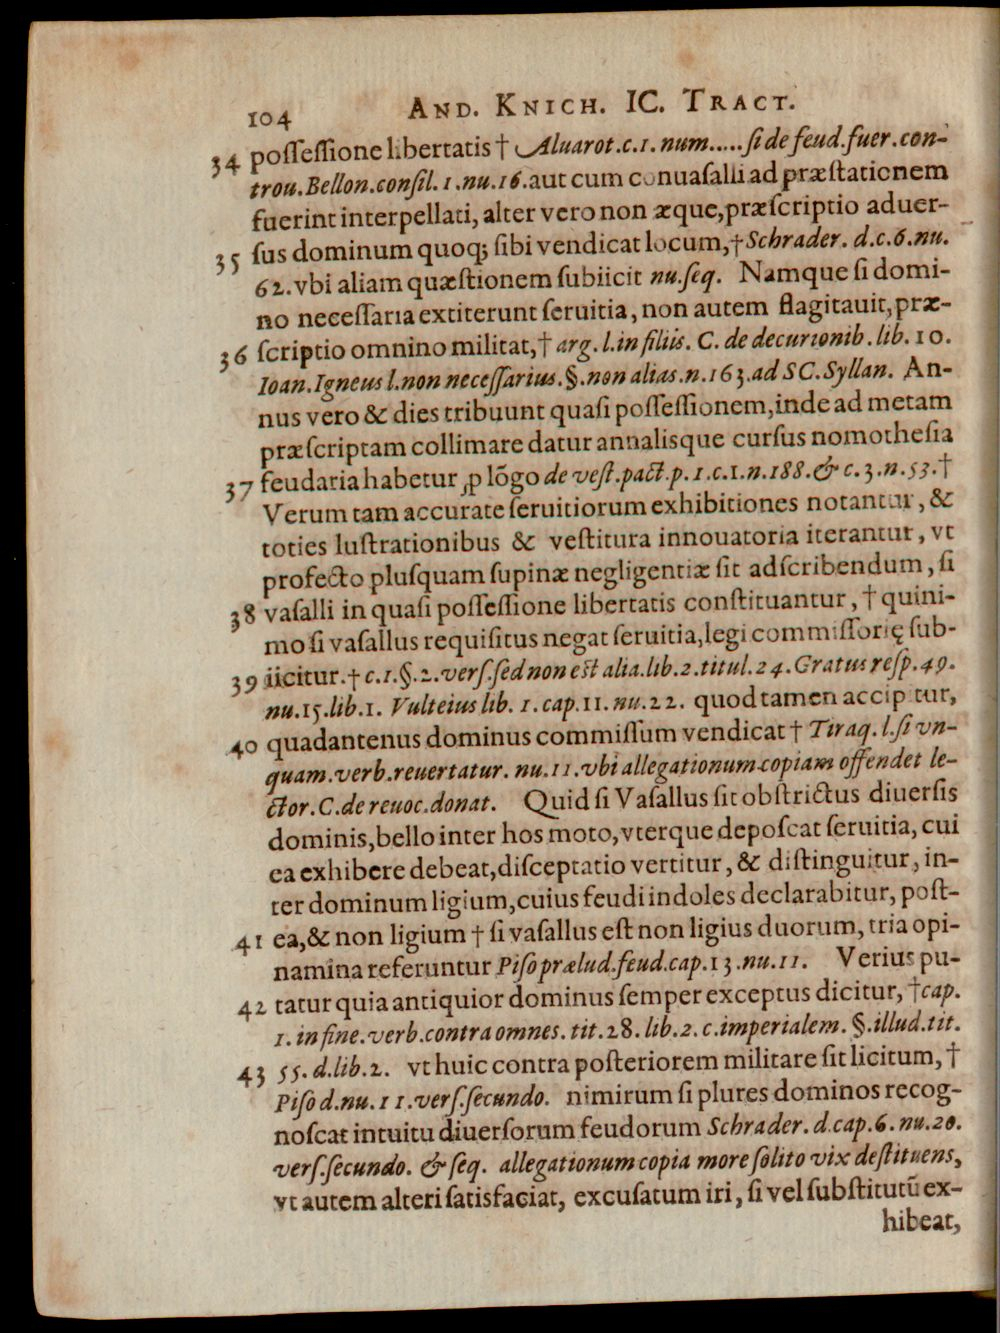 104 AND. KNICH. IC. TRACT.
34 poſſeſſione libertatis † Aluarot.c.1.num.....ſi de feud.fuer.con-
trou.Bellon.conſil.1.nu.16.aut cum conuaſalli ad præſtationem
fuerint interpellati, alter vero non æque,præſcriptio aduer-
35 ſus dominum quoq; ſibi vendicat locum,†Schrader. d.c.6.nu.
62.vbi aliam quæſtionem ſubiicit nu.ſeq. Namque ſi domi-
no neceſſaria extiterunt ſeruitia, non autem flagitauit, præ-
36 ſcriptio omnino militat,† arg.l.in filiis. C. de decurionib.lib.10.
Ioan.Igneus l.non neceſſarius.§.non alias.n.163.ad SC.Syllan. An-
nus vero & dies tribuunt quaſi poſſeſſionem,inde ad metam
præſcriptam collimare datur annalisque curſus nomotheſia
37 feudaria habetur ꝓ lõgo de veſt.pact.p.1.c.1.n.188.& c.3.n.53.†
Verum tam accurate ſeruitiorum exhibitiones notantur, &
toties luſtrationibus & veſtitura innouatoria iterantur, vt
profecto pluſquam ſupinæ negligentiæ ſit adſcribendum, ſi
38 vaſalli in quaſi poſſeſſione libertatis conſtituantur, † quini-
mo ſi vaſallus requiſitus negat ſeruitia,legi commiſſorię ſub-
39 iicitur.† c.1.§.2.verſ.ſed non eſt alia.lib.2.titul.24.Gratus reſp.49.
nu.15.lib.1. Vulteius lib. 1.cap.11.nu.22. quod tamen accipitur,
40 quadantenus dominus commiſſum vendicat † Tiraq.l.ſi vn-
quam.verb.reuertatur. nu.11.vbi allegationum copiam offendet le-
ctor.C.de reuoc.donat. Quid ſi Vaſallus ſit obſtrictus diuerſis
dominis,bello inter hos moto,vterque depoſcat ſeruitia, cui
ea exhibere debeat,diſceptatio vertitur, & diſtinguitur, in-
ter dominum ligium,cuius feudi indoles declarabitur, poſt-
41 ea,& non ligium † ſi vaſallus eſt non ligius duorum, tria opi-
namina referuntur Piſo prælud.feud.cap.13.nu.11. Verius pu-
42 tatur quia antiquior dominus ſemper exceptus dicitur, †cap.
1.in fine.verb.contra omnes. tit.28.lib.2.c.imperialem. §.illud.tit.
43 55.d.lib.2. vt huic contra poſteriorem militare ſit licitum, †
Piſo d.nu.11.verſ.ſecundo. nimirum ſi plures dominos recog-
noſcat intuitu diuerſorum feudorum Schrader. d.cap.6.nu.20.
verſ.ſecundo. & ſeq. allegationum copia more ſolito vix deſtituens,
vt autem alteri ſatisfaciat, excuſatum iri, ſi vel ſubſtitutũ ex-
hibeat,